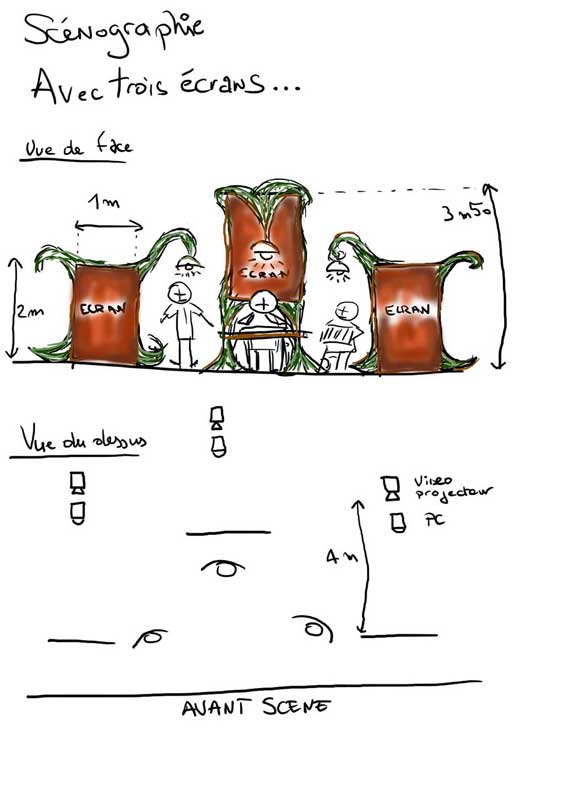 Scénographie
Avec trois écrans...
Vue de face
1m
3m50
ECRAN
2m
ECRAN
ECRAN
Vue du dessus
Video
projecteur
PC
4m
AVANT SCENE